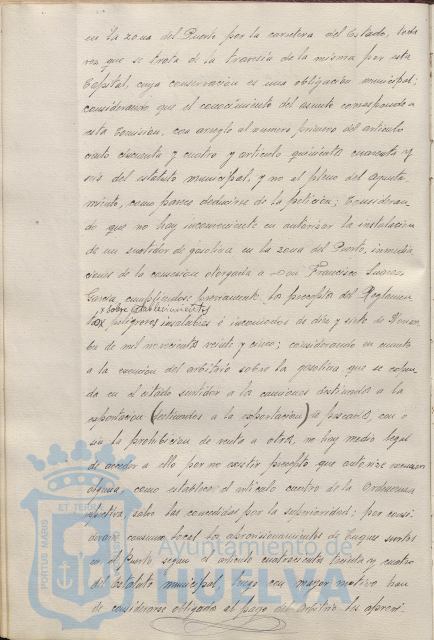 en la zona del Puerto por la carretera del Estado, toda
vez que se trata de la travesía de la misma por esta
Capital, cuya conservación es una obligación municipal;
considerando que el conocimiento del asunto corresponde a
esta Comisión, con arreglo al número primero del artículo
ciento cincuenta y cuatro y artículo quinientos cuarenta y
seis del estatuto municipal, y no al pleno del Ayunta
miento, como parece deducirse de la petición; Consideran
do que no hay inconveniente en autorizar la instalación
de un surtidor de gasolina en la zona del Puerto, inmedia
ciones de la concesión otorgada a Don Francisco Suárez
García, cumpliéndose previamente los preceptos del Reglamen
x sobre establecimientos
to x peligrosos insalubres é incomodos de diez y siete de Noviem
bre de mil novecientos veinte y cinco; considerando en cuanto
a la exención del arbitrio sobre la gasolina que se expen
da en el citado surtidor a los camiones destinados a la
exportación (destinados a la exportación) de pescados, con o
sin la prohibición de venta a otros, no hay medio legal
de acceder a ello por no existir precepto que autorice
alguna, como establece el artículo cuatro de la Ordenanza
salvo las concedidas por la superioridad; por consi
derarse consumo local los aprovisionamientos de buques surtos
en el Puerto según el artículo cuatrocientos treinta y cuatro
del Estatuto municipal, luego con mayor motivo han
de considerarse obligados al pago del arbitrio los aprovi-
PORTUS MARIS
ET TERR
Ayuntamiento de
HUELVA